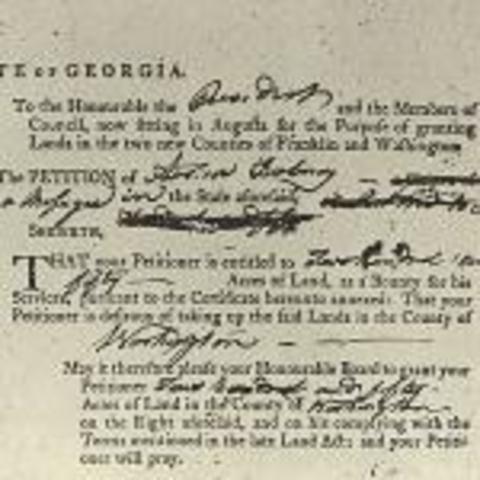 TE OF GEORGIA.
To the Honourable the President and the Members of
Council, now sitting in Augusta for the Purpose of granting
Lands in the two new Counties of Franklin and Washington
The PETITION of
a Refugee in the State aforesaid,
SHEWETH,
THAT your Petitioner is entitled to Two Hundred and
fifty Acres of Land, as a Bounty for his
Services, pursuant to the Certificate hereunto annexed: That your
Petitioner is desirous of taking up the said Lands in the County of
Washington
May it therefore please your Honourable Board to grant your
Petitioner Two hundred and fifty
Acres of Land in the County of Washington
on the Right aforesaid, and on his complying with the
Terms mentioned in the late Land Act: and your Petiti-
oner will pray.